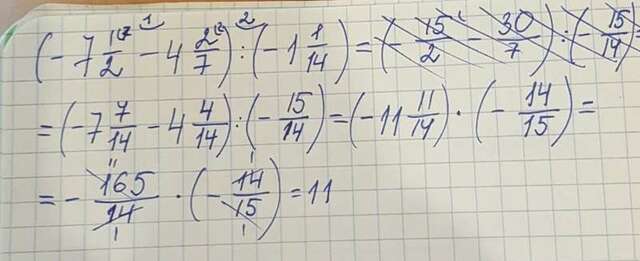 (-7 1/2 - 4 2/7) : (-1 1/14) = (- 15/2 - 30/7) : (- 15/14) =
= (-7 7/14 - 4 4/14) : (- 15/14) = (-11 11/14) · (- 14/15) =
= - 165/14 · (- 14/15) = 11